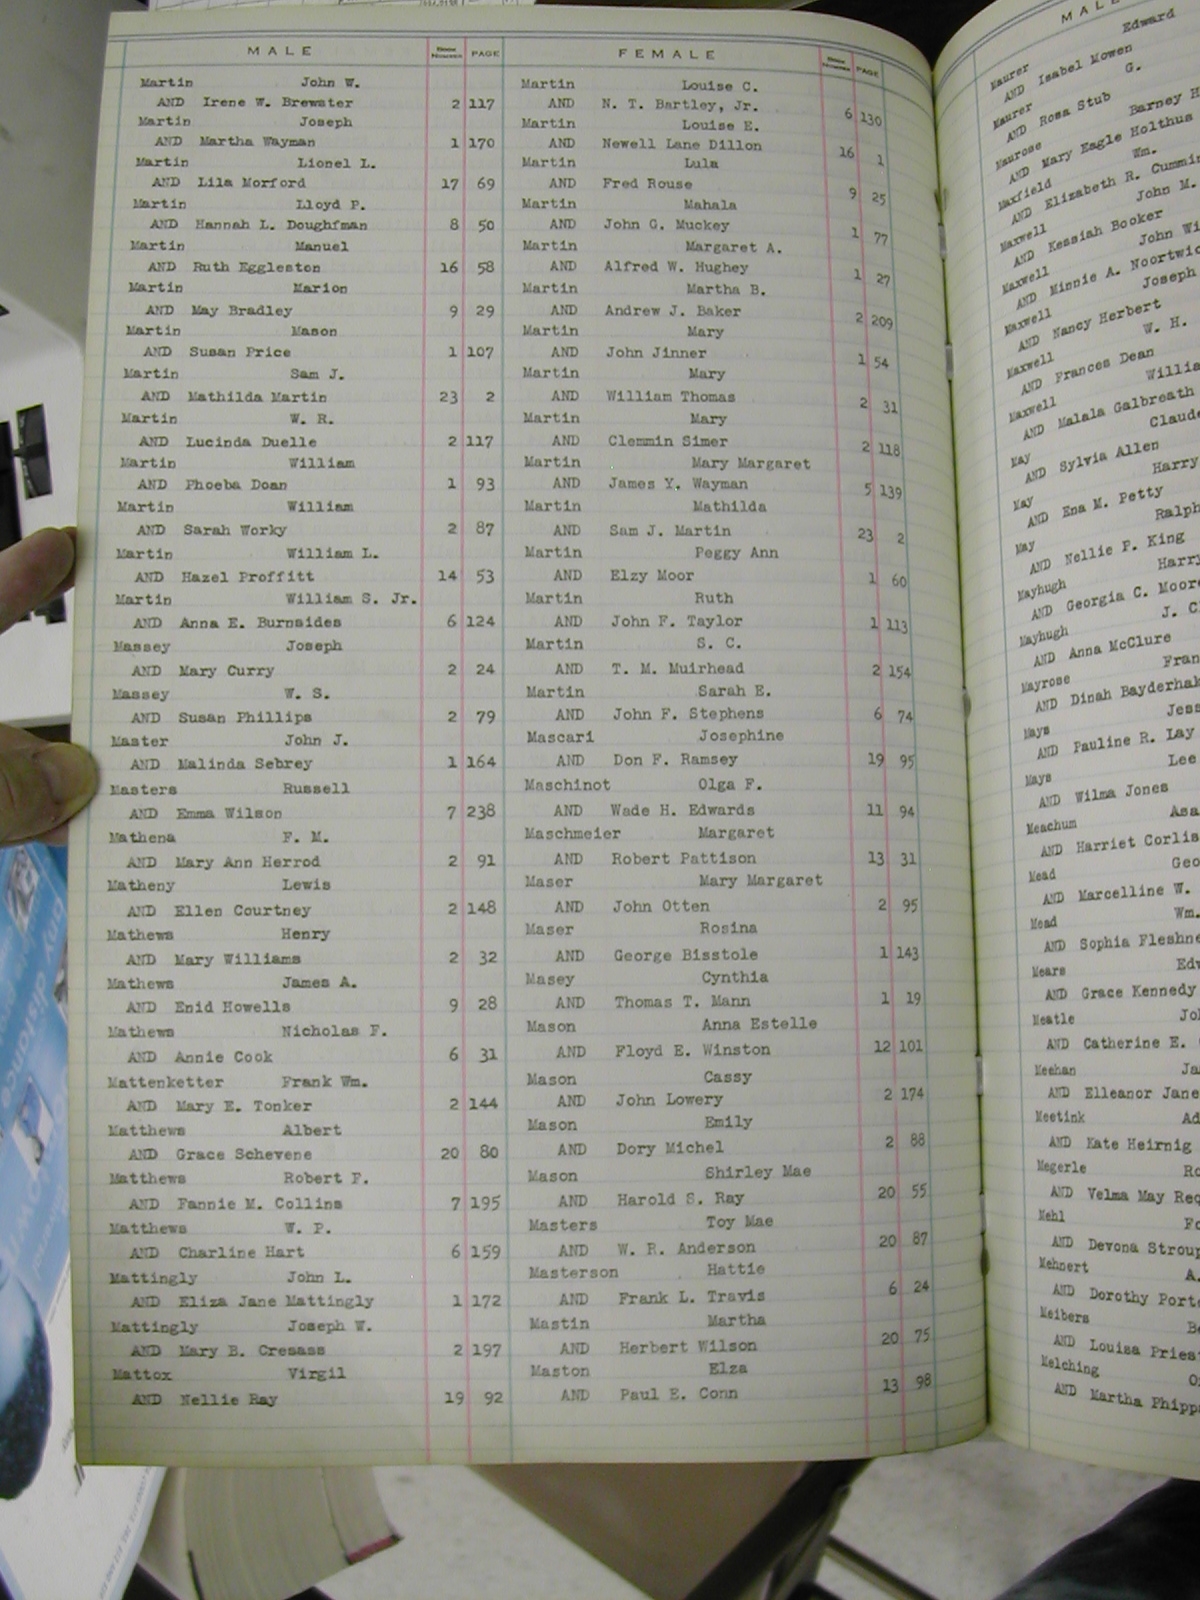 MALE BOOK NUMBER PAGE
Martin John W.
AND Irene W. Brewster 2 117
Martin Joseph
AND Martha Wayman 1 170
Martin Lionel L.
AND Lila Morford 17 69
Martin Lloyd P.
AND Hannah L. Doughfman 8 50
Martin Manuel
AND Ruth Eggleston 16 58
Martin Marion
AND May Bradley 9 29
Martin Mason
AND Susan Price 1 107
Martin Sam J.
AND Mathilda Martin 23 2
Martin W. R.
AND Lucinda Duelle 2 117
Martin William
AND Phoeba Doan 1 93
Martin William
AND Sarah Worky 2 87
Martin William L.
AND Hazel Proffitt 14 53
Martin William S. Jr.
AND Anna E. Burnsides 6 124
Massey Joseph
AND Mary Curry 2 24
Massey W. S.
AND Susan Phillips 2 79
Master John J.
AND Malinda Sebrey 1 164
Masters Russell
AND Emma Wilson 7 238
Mathena F. M.
AND Mary Ann Herrod 2 91
Matheny Lewis
AND Ellen Courtney 2 148
Mathews Henry
AND Mary Williams 2 32
Mathews James A.
AND Enid Howells 9 28
Mathews Nicholas F.
AND Annie Cook 6 31
Mattenketter Frank Wm.
AND Mary E. Tonker 2 144
Matthews Albert
AND Grace Schevene 20 80
Matthews Robert F.
AND Fannie M. Collins 7 195
Matthews W. P.
AND Charline Hart 6 159
Mattingly John L.
AND Eliza Jane Mattingly 1 172
Mattingly Joseph W.
AND Mary B. Cresass 2 197
Mattox Virgil
AND Nellie Ray 19 92
FEMALE BOOK NUMBER PAGE
Martin Louise C.
AND N. T. Bartley, Jr. 6 130
Martin Louise E.
AND Newell Lane Dillon 16 1
Martin Lula
AND Fred Rouse 9 25
Martin Mahala
AND John G. Muckey 1 77
Martin Margaret A.
AND Alfred W. Hughey 1 27
Martin Martha B.
AND Andrew J. Baker 2 209
Martin Mary
AND John Jinner 1 54
Martin Mary
AND William Thomas 2 31
Martin Mary
AND Clemmin Simer 2 118
Martin Mary Margaret
AND James Y. Wayman 5 139
Martin Mathilda
AND Sam J. Martin 23 2
Martin Peggy Ann
AND Elzy Moor 1 60
Martin Ruth
AND John F. Taylor 1 113
Martin S. C.
AND T. M. Muirhead 2 154
Martin Sarah E.
AND John F. Stephens 6 74
Mascari Josephine
AND Don F. Ramsey 19 95
Maschinot Olga F.
AND Wade H. Edwards 11 94
Maschmeier Margaret
AND Robert Pattison 13 31
Maser Mary Margaret
AND John Otten 2 95
Maser Rosina
AND George Bisstole 1 143
Masey Cynthia
AND Thomas T. Mann 1 19
Mason Anna Estelle
AND Floyd E. Winston 12 101
Mason Cassy
AND John Lowery 2 174
Mason Emily
AND Dory Michel 2 88
Mason Shirley Mae
AND Harold S. Ray 20 55
Masters Toy Mae
AND W. R. Anderson 20 87
Masterson Hattie
AND Frank L. Travis 6 24
Mastin Martha
AND Herbert Wilson 20 75
Maston Elza
AND Paul E. Conn 13 98
Maurer Edward
AND Isabel Mowen
Maurer G.
AND Rosa Stub
Maurose Barney H
AND Mary Eagle Holthus
Maxfield Wm.
AND Elizabeth R.
Maxwell John M.
AND Kessiah Booker
Maxwell John
AND Minnie A.
Maxwell Joseph
AND Nancy Herbert
Maxwell W. H.
AND Frances Dean
Maxwell
AND Malala Galbreath
May
AND Sylvia Allen
May Harry
AND Ena M. Petty
May Ralph
AND Nellie P. King
Mayhugh Harry
AND Georgia C.
Mayhugh J.
AND Anna McClure
Mayrose
AND Dinah
Mays
AND Pauline R. Lay
Mays Lee
AND Wilma Jones
Meachum Asa
AND Harriet
Mead
AND Marcelline W.
Mead Wm.
AND Sophia
Mears
AND Grace Kennedy
Meatle
AND Catherine E.
Meehan
AND Elleanor Jane
Meetink
AND Kate Heirnig
Megerle
AND Velma May
Mehl
AND Devona
Mehnert A.
AND Dorothy
Meibers
AND Louisa
Melching
AND Martha